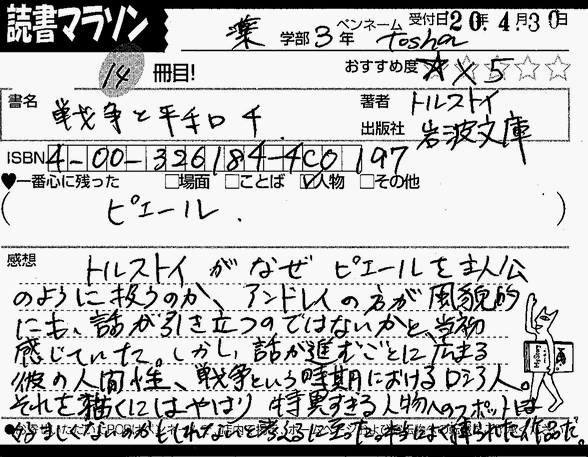 読書マラソン
薬 学部 3 年 ペンネーム toshon 受付日 20年 4月30日
14 冊目! おすすめ度 ☆×5
書名 戦争と平和
著者 トルストイ
出版社 岩波文庫
ISBN 4-00-326184-4 C0197
♥一番心に残った □場面 □ことば ☑人物 □その他
( ピエール. )
感想 トルストイがなぜピエールを主人公
のように扱うのか、アンドレイの方が風貌的
にも、話が引き立つのではないかと、当初
感じていた。しかし、話が進むごとに広まる
彼の人間性、戦争という時期におけるロシア人。
それを描くにはやはり特異すぎる人物へのスポットは
くるましくないのかもしれないと考えるに至った。本当によく